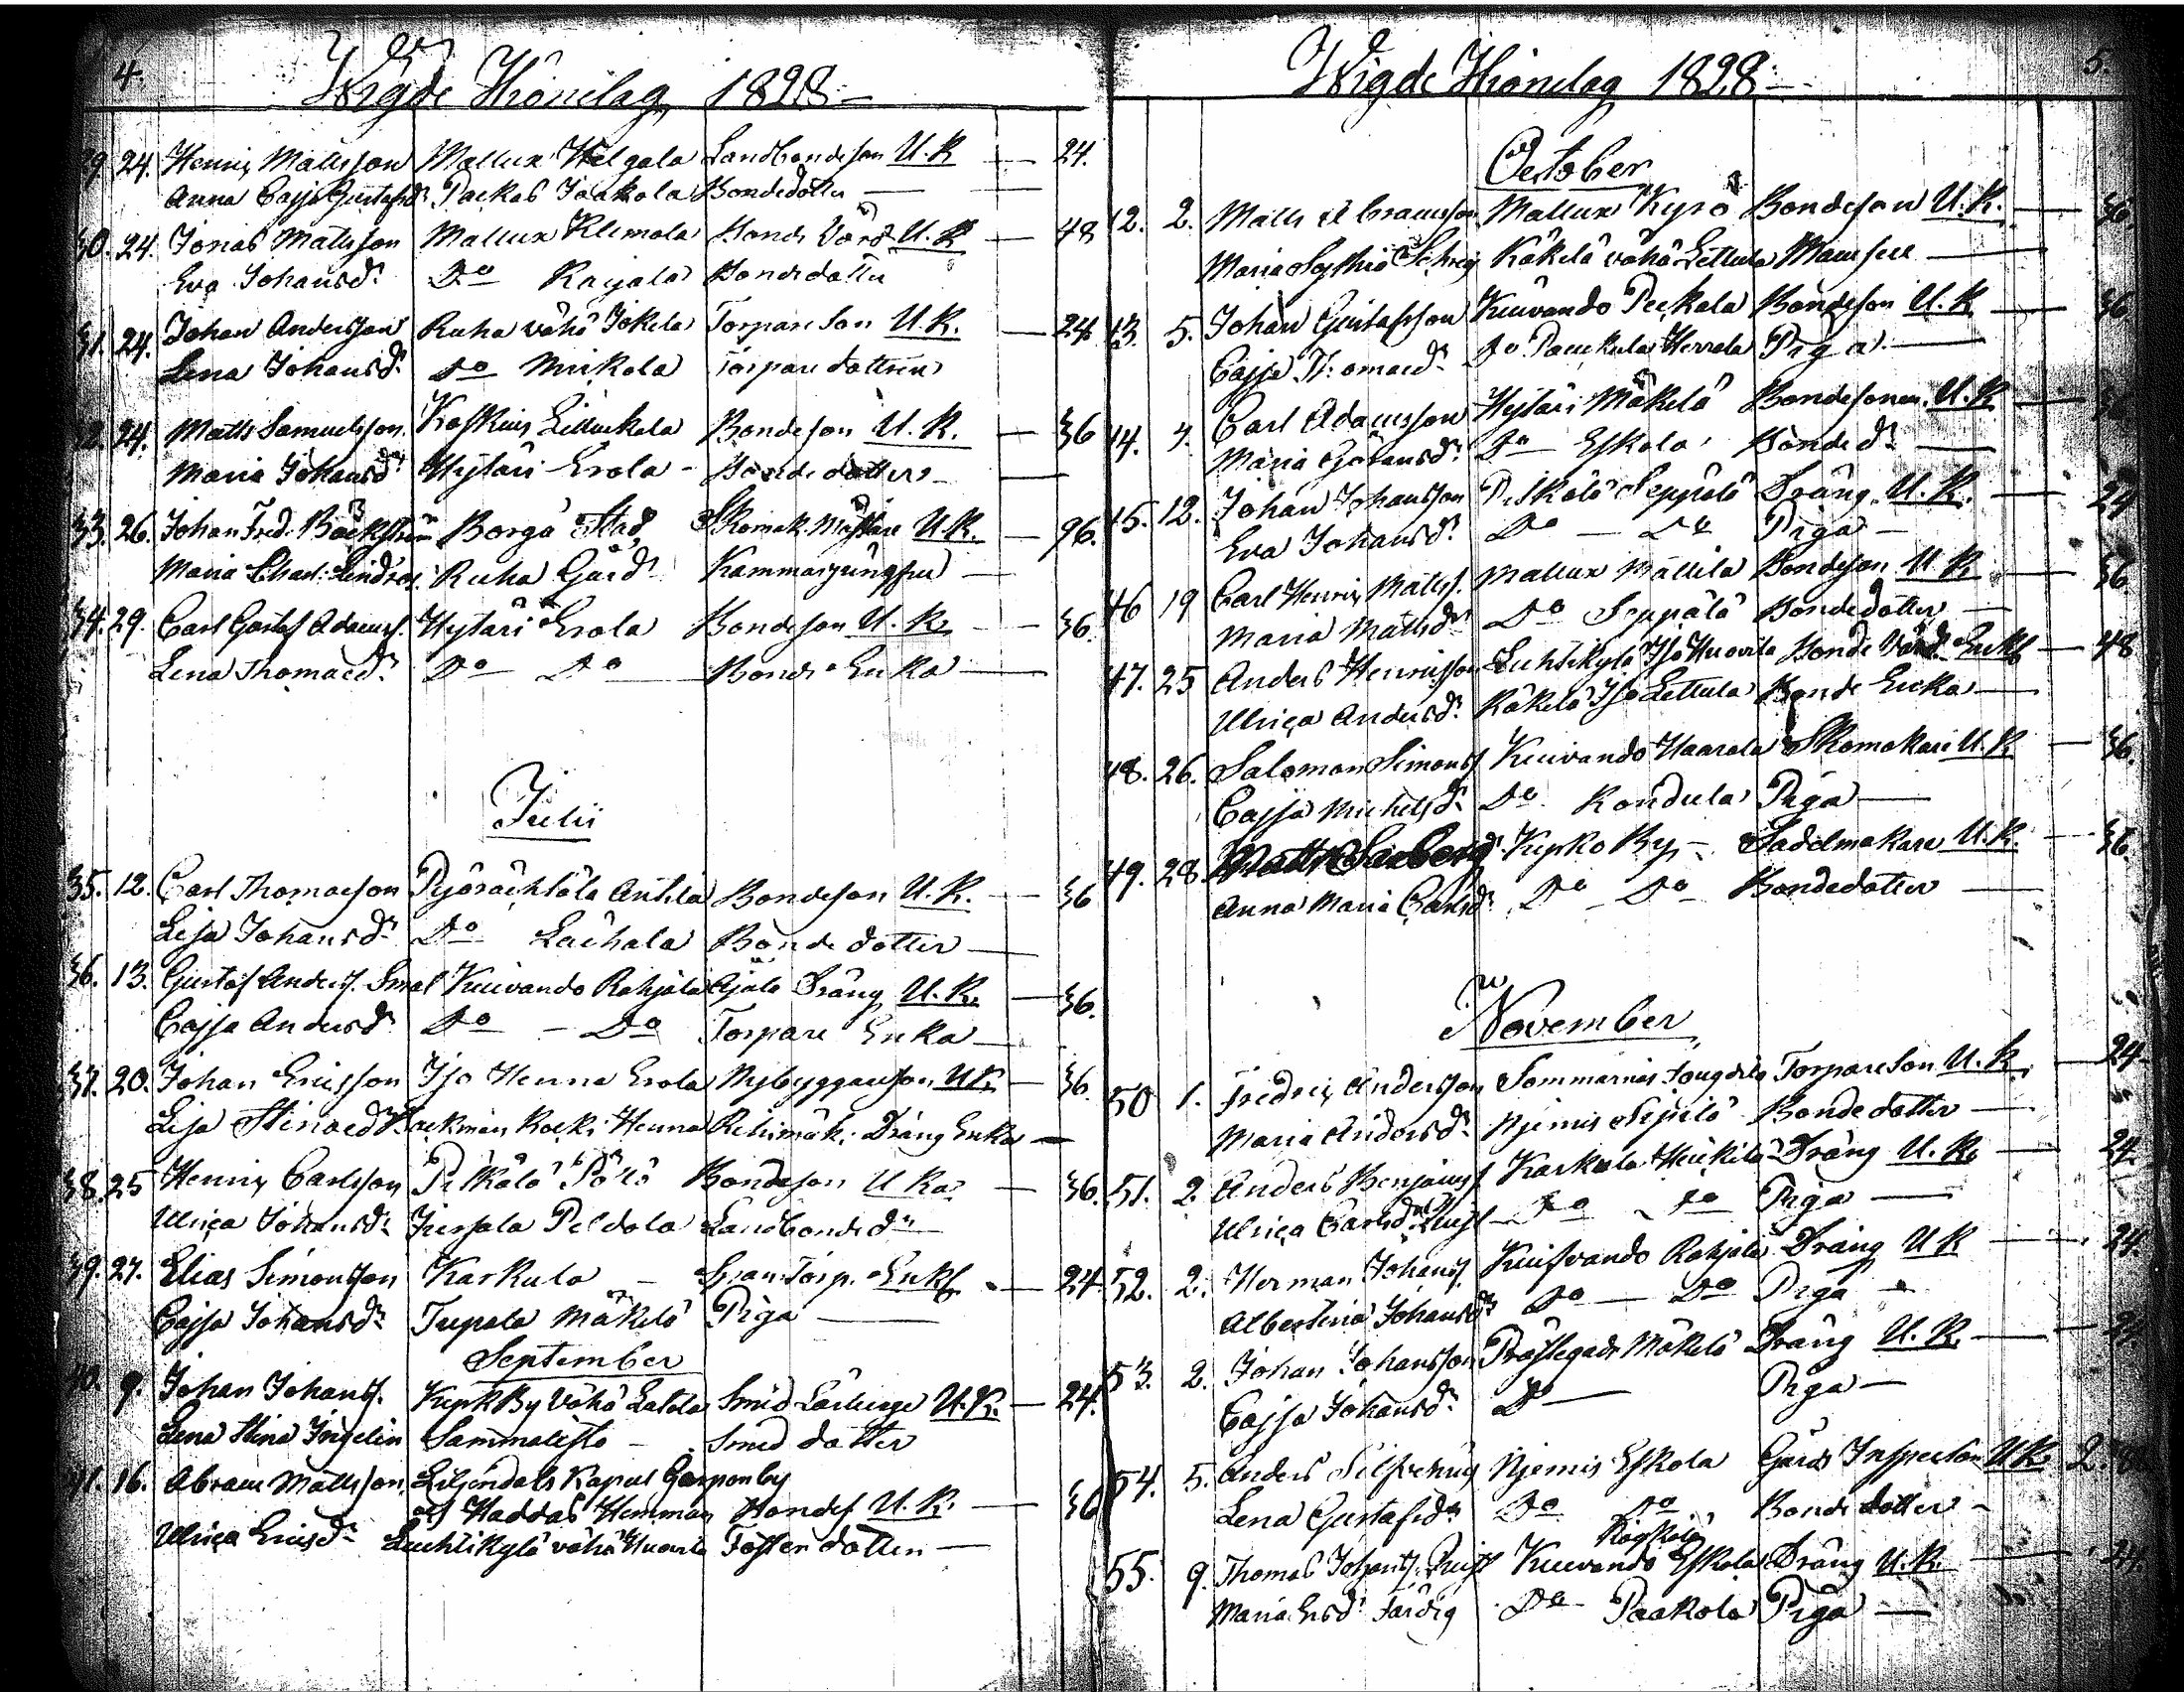 4.
Wigde Hionelag 1828
29. 24. Henric Mattsson Mallux Helgala Landbondeson U.K 24.
Anna Cajsa Gustafsdr Packas Jaakola Bondedotter
30. 24. Jonas Mattsson Mallux Klemola Bonde Värd U.K 48
Eva Johansdr Do Karjala Bondedotter
31. 24. Johan Andersson Ruha vähä Jokela Torpareson U.K. 24
Lena Johansd. Do Mickola Torpare dottren
32. 24. Matts Samuelsson Koskius Lilluckala Bondeson U.K. 36
Maria Johansdr Hytari Erola Bonde dotter
33. 26. Johan Fred. Bäckström Borgå Stad Skomak. Mästare U.K. 96.
Maria Charl. Lindros Ruha Gård Kammarjungfru
34. 29. Carl Gustaf Adamss. Hytari Erola Bondeson U.K 36
Lena Thomaedr Do Do Bonde Enka
Julii
35. 12. Carl Thomasson Pyörächtälä Anttila Bondeson U.K. 36
Lisa Johansdr Do Lachala Bonde dotter
36. 13. Gustaf Anderss. Smal Kuivando Rahjala Ajala Dräng U.K. 36.
Cajsa Andersdr Do Do Torpare Enka
37. 20. Johan Ericsson Iso Henna Erola Nybyggareson U.K 36
Lisa Stinaedr Rihimäki Dräng Enka
38. 25 Henric Carlsson Pitkälä Bondeson U Ka 36.
Ulrica Johansdr Peldola Landbondedr
39. 27. Elias Simonsson Karkula Enkl 24
Cajsa Johansdr Tupala Mäkelä Piga
September
40. 9. Johan Johanss. Kupk By vähä Smid Lärlinge U.K. 24.
Lena Stina Ingelin Sammalisto Smed dotter
41. 16. Abram Mattsson, Liljendals Kapell Garpomby
af Haddas Hemman Bondes. U.K. 36
Ulrica Ericsdr Luhtikylä vähä Huovila Foster dotter
5.
Wigde Hionelag 1828
October
42. 2. Matts Abramsson Mallux Kyrö Bondeson U.K. 36
Maria Sophia Käkelä vähä Lettula Mamsell
43. 5. Johan Gustafsson Kuivando Peckala Bondeson U.K 36
Cajsa Thomaedr Do Herrala Piga
44. 7. Carl Adamsson Hytari Mäkelä Bondesonen U.K 36
Maria Göransdr Do Eskola Bonded.
45. 12. Johan Johansson Pitkälä Seppälä Dräng U.K. 24
Eva Johansdr Do Do Piga
46 19 Carl Henric Mattss. Mallux Mattila Bondeson U.K 36
Maria Mattsdr Do Seppälä Bondedotter
47. 25 Anders Henricsson Luhtikylä Iso Huovila Bonde Värd Enkl 48
Ulrica Andersdr Käkelä Iso Lettula Bonde Enka
48. 26. Salomon Simonss Kuivando Haarala Skomakare U.K 36.
Cajsa Michelsdr Do Kondula Piga
49. 28. Kupko By Sadelmakare U.K. 36.
Anna Maria Carlsdr Do Do Bondedotter
November
50 1. Fredric Andersson Sommarnäs TorpareSon U.K. 24
Maria Andersdr Njemis Bonde dotter
51. 2. Anders Benjamss Karkula Heickilä Dräng U.K. 24.
Ulrica Carlsdr Do Do Piga
52. 2. Herman Johanss. Kuifvando Rahjala Dräng U K 24.
Albertina Johansdr Do Do Piga
53. 2. Johan Johansson Prästegårds Mäkelä Dräng U.K. 24.
Cajsa Johansdr Do Piga
54. 5. Anders Njemis Eskola Gårds Inspector U.K 2.
Lena Gustafsdr Do Do Bonde dotter
55. 9. Thomas Johanss. Kuivando Eskola Dräng U.K. 24.
Maria Färdig Do Paakola Piga